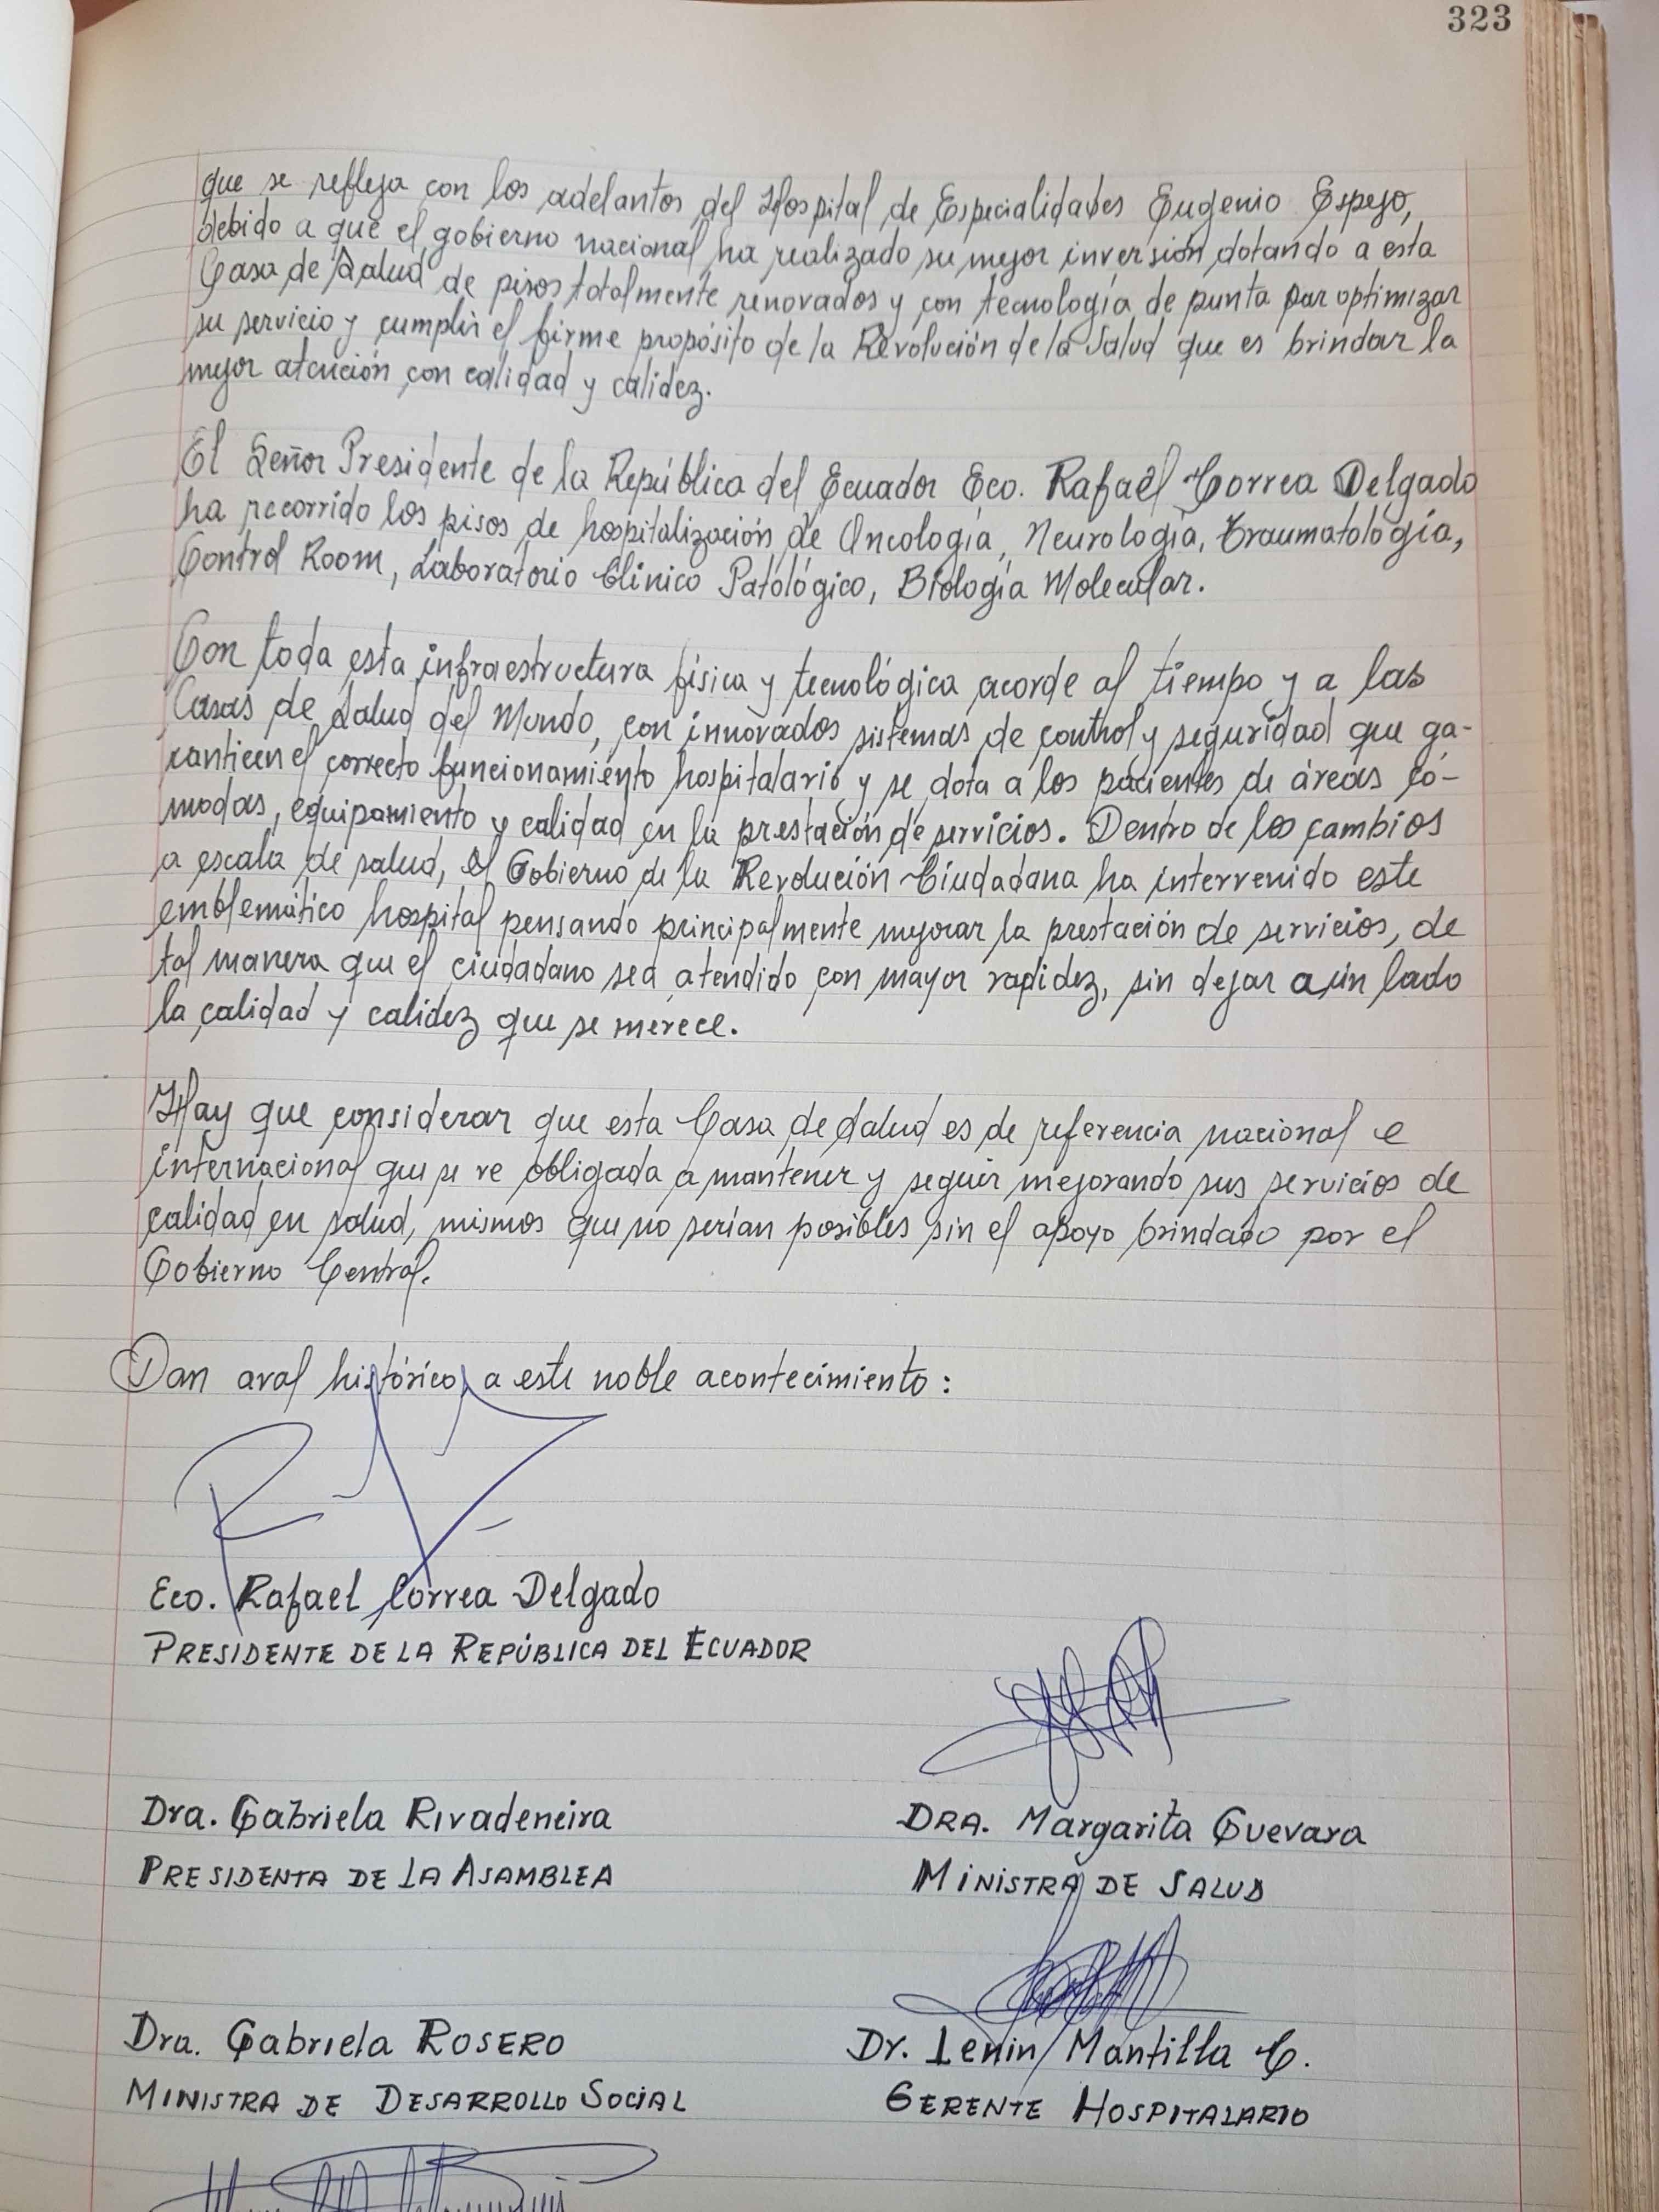 323
que se refleja con los adelantos del Hospital de Especialidades Eugenio Espejo,
debido a que el gobierno nacional ha realizado su mejor inversión dotando a esta
Casa de Salud de pisos totalmente renovados y con tecnología de punta par optimizar
su servicio y cumplir el firme propósito de la Revolución de la Salud que es brindar la
mejor atención con calidad y calidez.
El Señor Presidente de la República del Ecuador Eco. Rafaél Correa Delgado
ha recorrido los pisos de hospitalización de Oncología, Neurología, Traumatología,
Control Room, Laboratorio Clínico Patológico, Biología Molecular.
Con toda esta infraestructura física y tecnológica acorde al tiempo y a las
Casas de Salud del Mundo, con innovados sistemas de control y seguridad que ga-
ranticen el correcto funcionamiento hospitalario y se dota a los pacientes de áreas có-
modas, equipamiento y calidad en la prestación de servicios. Dentro de los cambios
a escala de salud, el Gobierno de la Revolución Ciudadana ha intervenido este
emblemático hospital pensando principalmente mejorar la prestación de servicios, de
tal manera que el ciudadano sea atendido con mayor rapidez, sin dejar a un lado
la calidad y calidez que se merece.
Hay que considerar que esta Casa de Salud es de referencia nacional e
internacional que se ve obligada a mantener y seguir mejorando sus servicios de
calidad en salud, mismos que no serían posibles sin el apoyo brindado por el
Gobierno Central.
Dan aval histórico a este noble acontecimiento:
Eco. Rafael Correa Delgado
PRESIDENTE DE LA REPÚBLICA DEL ECUADOR
Dra. Gabriela Rivadeneira
PRESIDENTA DE LA ASAMBLEA
DRA. Margarita Guevara
MINISTRA DE SALUD
Dra. Gabriela ROSERO
MINISTRA DE DESARROLLO SOCIAL
Dr. Lenin Mantilla C.
GERENTE HOSPITALARIO